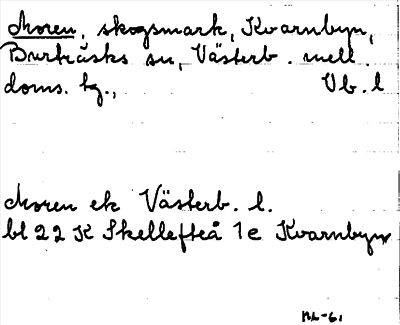 Moren, skogsmark, Kvarnbyn,
Burträsks sn, Västerb. mell.
doms. tg., Vb. l
Moren ek Västerb. l.
bl 22 K Skellefteå 1e Kvarnbyn